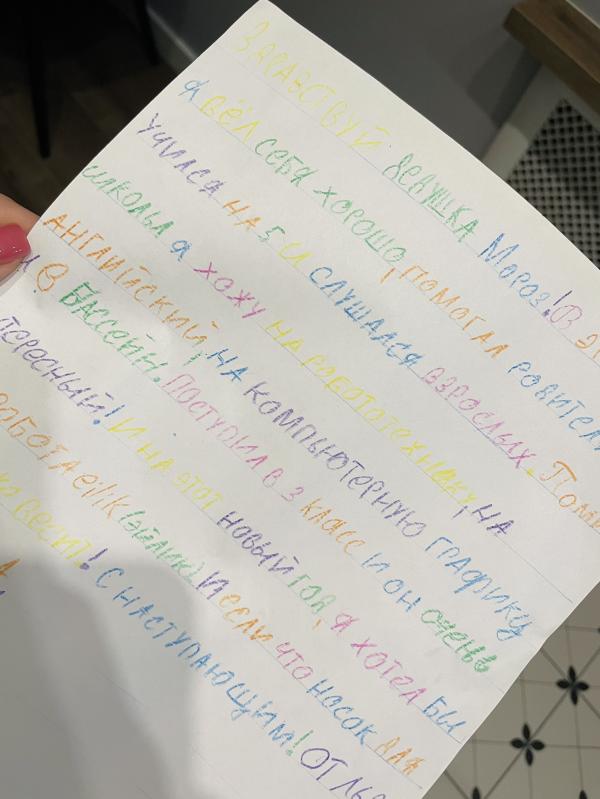 ЗДРАВСТВУЙ ДЕДУШКА МОРОЗ! В
Я ВЁЛ СЕБЯ ХОРОШО, ПОМОГАЛ РОДИТЕЛ
УЧИЛСЯ НА 5 И СЛУШАЛСЯ ВЗРОСЛЫХ.
ШКОЛЫ Я ХОЖУ НА РОБОТОТЕХНИКУ, НА
АНГЛИЙСКИЙ, НА КОМПЬЮТЕРНУЮ ГРАФИКУ
И В БАССЕЙН. ПОСТУПИЛ В 3 КЛАСС И ОН ОЧЕНЬ
ТЕРЕСНЫЙ! И НА ЭТОТ НОВЫЙ ГОД, Я ХОТЕЛ БЫ
РОБОТА eilik (ЭЙЛИК) И ЕСЛИ ЧТО НОСОК ДЛЯ
ВЕСИТ! С НАСТУПАЮЩИМ! ОТ